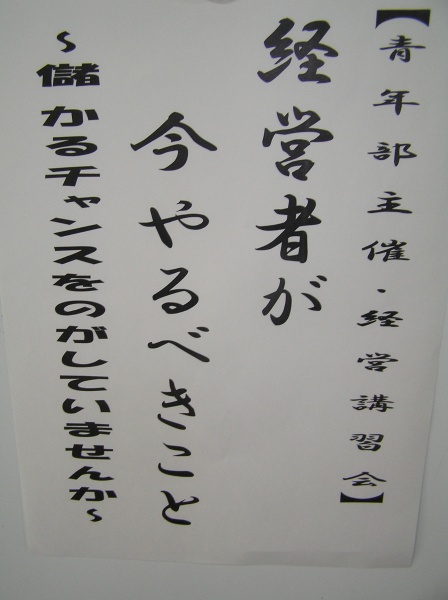 【青年部主催・経営講習会】
経営者が
今やるべきこと
～儲かるチャンスをのがしていませんか～